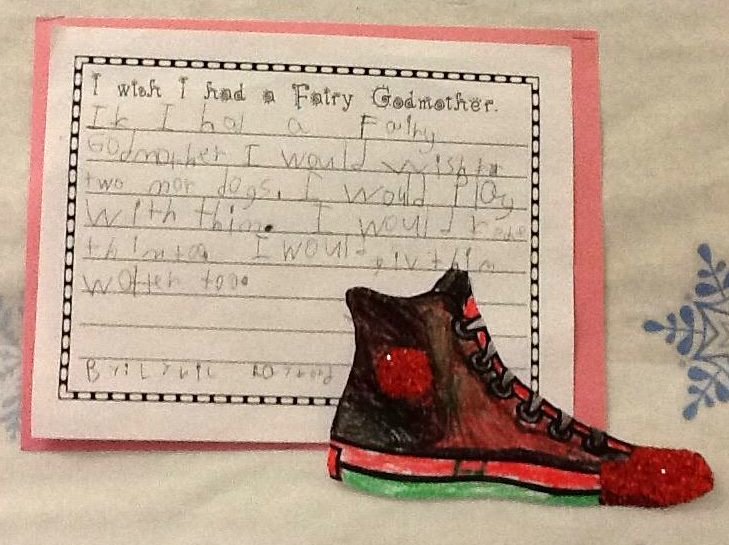 I wish I had a Fairy Godmother.
If I had a Fairy
Godmother I would wish
two mor dogs. I would Play
with thim. I would
thim too I would giv thim
woter too